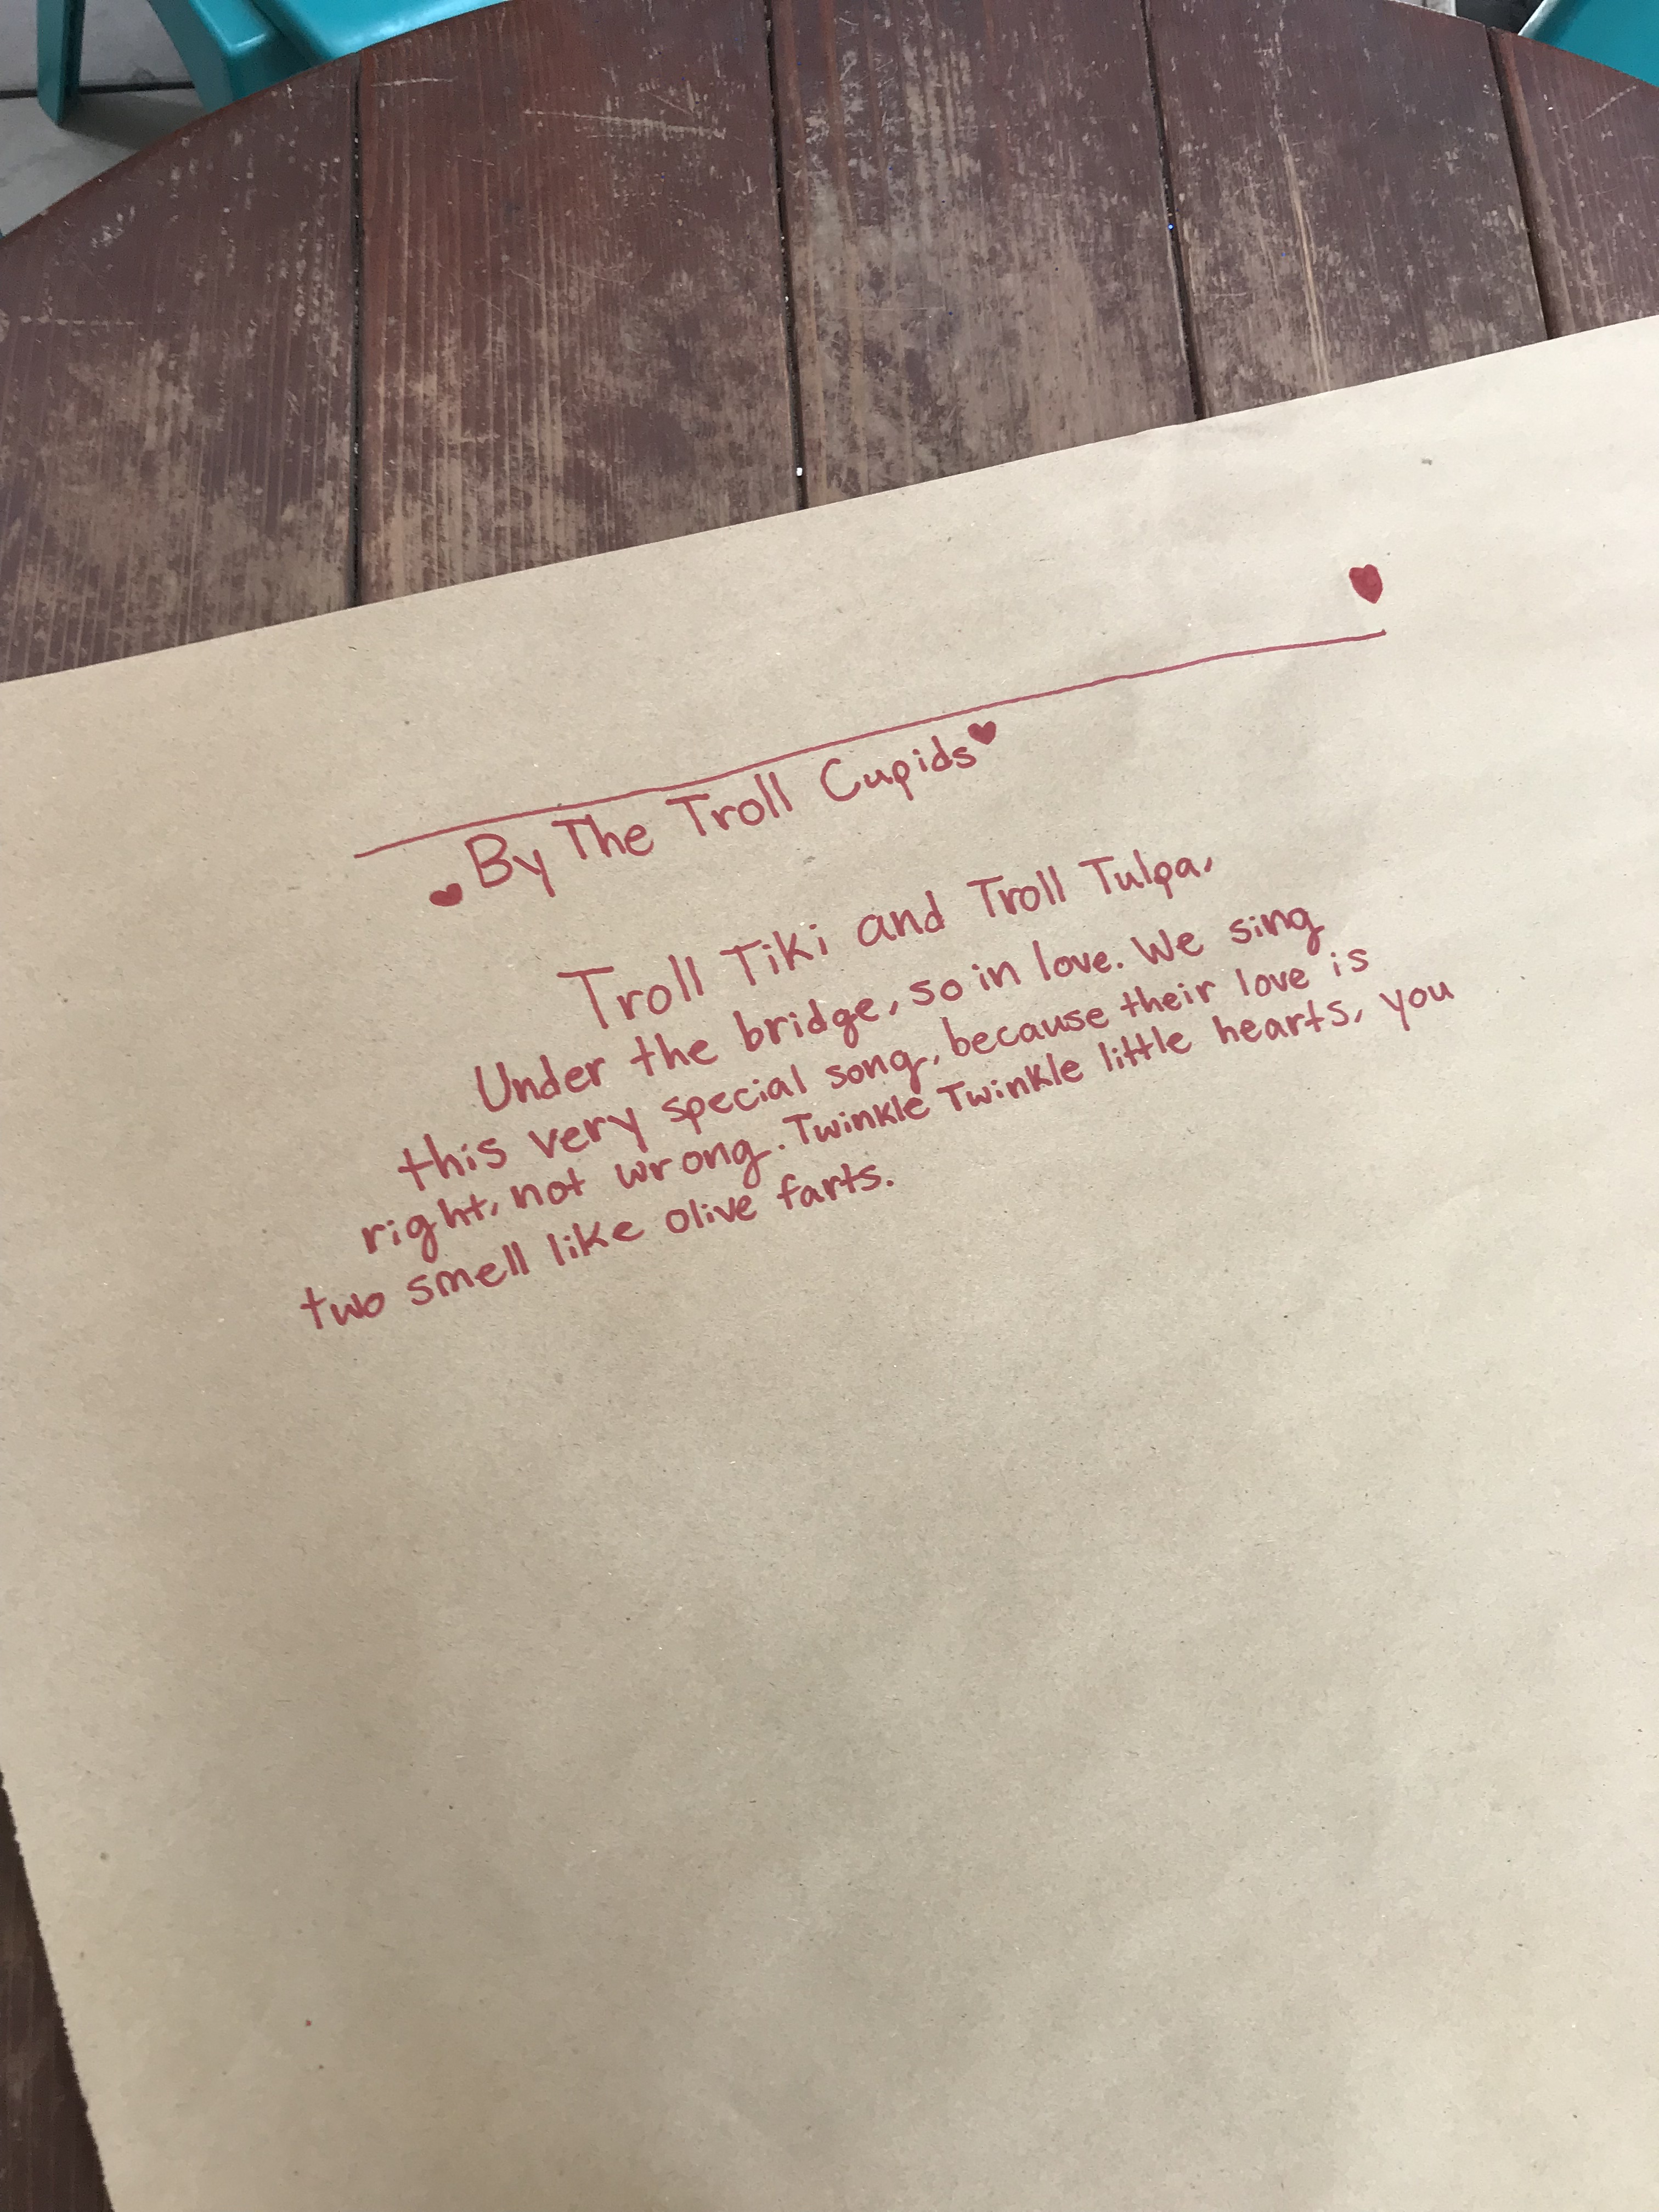 By The Troll Cupids
Troll Tiki and Troll Tulpa,
Under the bridge, so in love. We sing
this very special song, because their love is
right, not wrong. Twinkle Twinkle little hearts, you
two smell like olive farts.